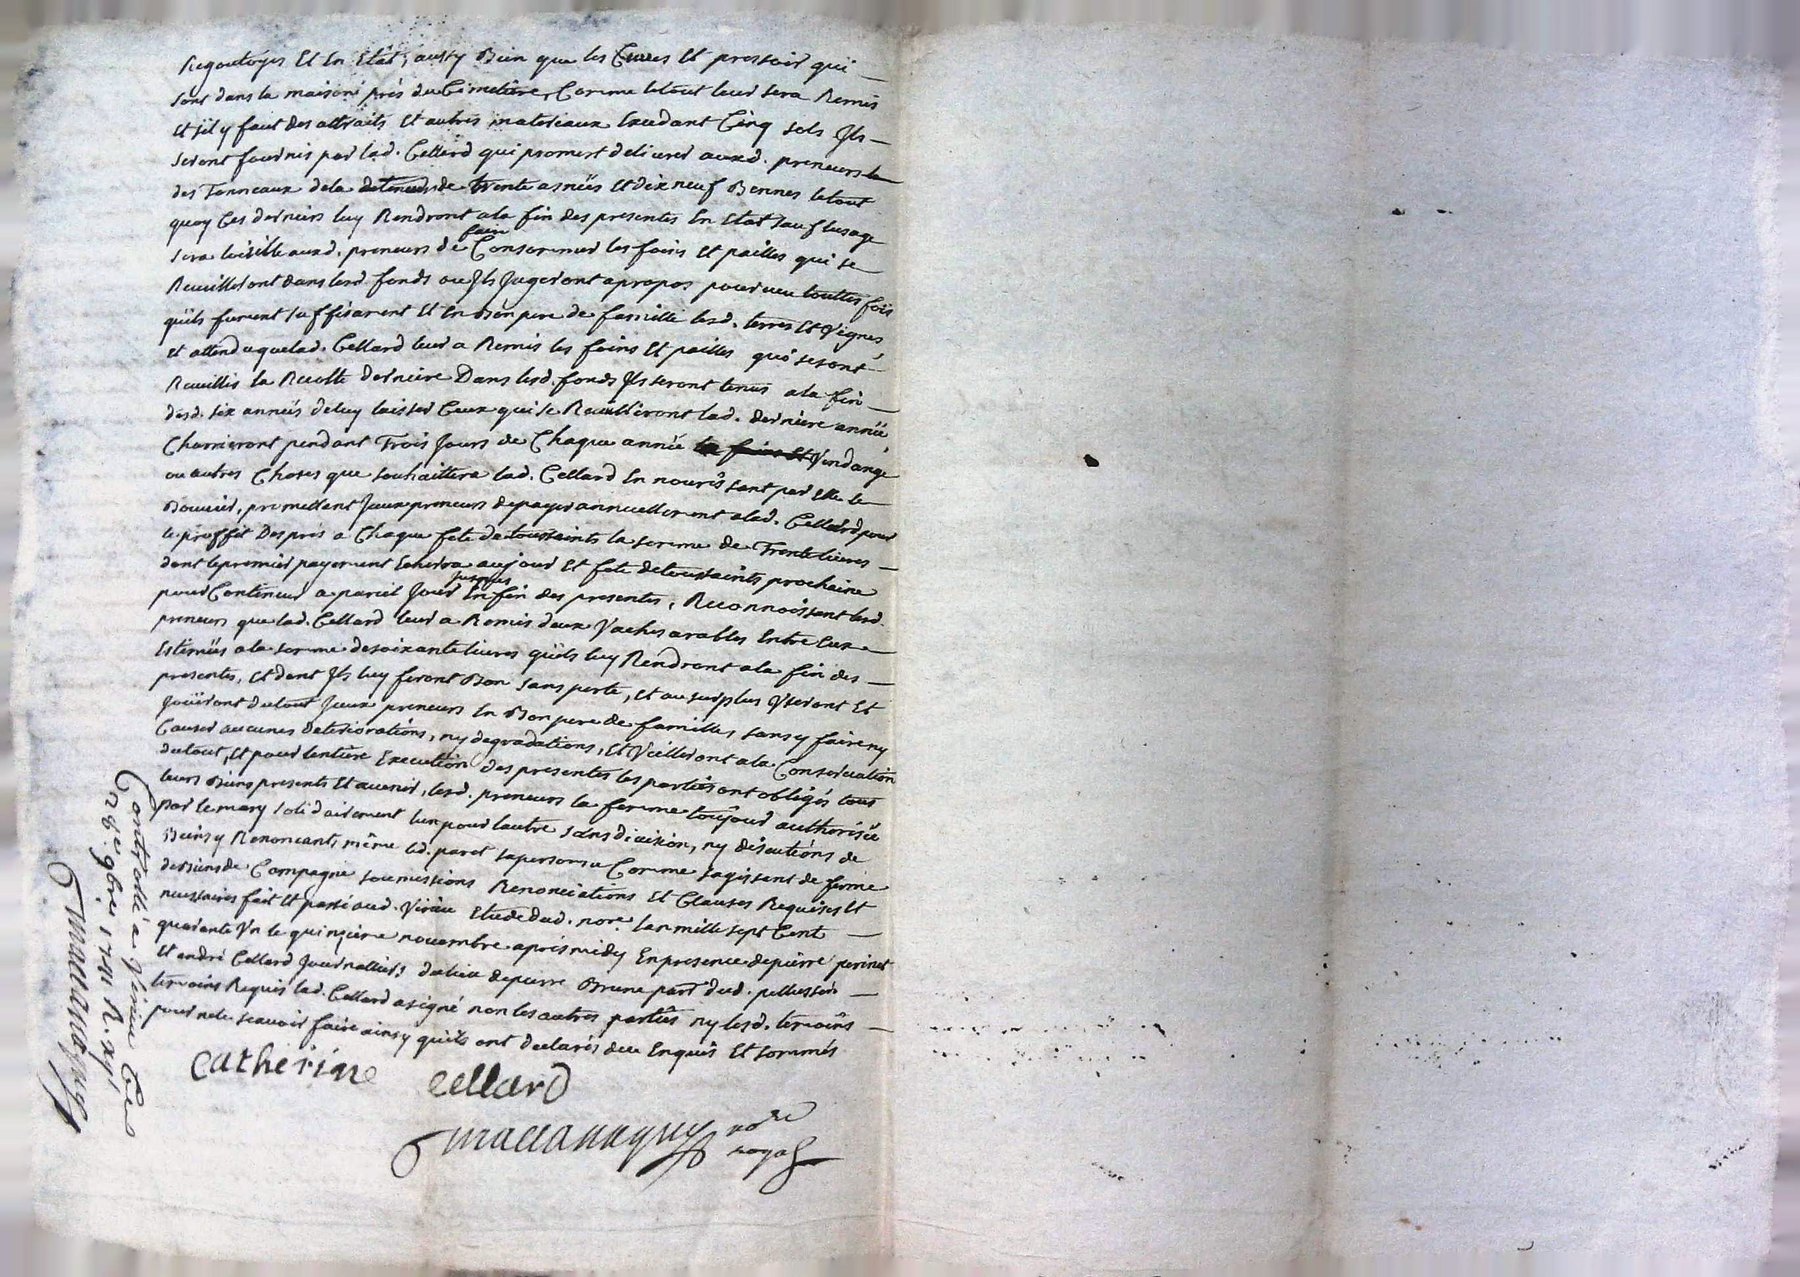 regoutoyés Et En Etat, aussy Bien que les Cuves Et pressoir qui
sont dans la maison près du Cimetière, Comme le tout leur sera Remis
Et s'il y faut des attraits Et autres materiaux Excedant Cinq sols Ils
seront fournis par lad. Cellard qui promest delivrer auxd. preneurs
des Tonneaux de la de trente asnées Et dix neuf Bennes le tout
quoy Ces derniers luy Rendront a la fin des presentes En Etat sauf lusage
sera loisible auxd. preneurs de faire Consommer les foins Et pailles qui se
Recuilliront dans lesd. fonds ou Ils Jugeront apropos pourveu touttes fois
quils fument suffisament Et En Bon pere de famille lesd. terres Et Vignes
Et attendu que lad. Cellard leur a Remis les foins Et pailles qui se sont
Recuillis la Recolte derniere Dans lesd. fonds Ils seront tenus a la fin
desd. six années de luy laisser Ceux qui se Recuilliront lad. derniere année
Charrieront pendant Trois Jours de Chaque année Vendange
ou autres Choses que souhaittera lad. Cellard En nourissant par Elle le
Bouvier, promettent Iceux preneurs de payer annuellement alad. Cellard pour
le proffit Des prés a Chaque fete de toussaints la somme de Trente livres
dont le premier payement Echerra au jour Et fete de toussaints prochaine
pour Continuer a pareil Jour jusques En fin des presentes, Reconnoissent lesd.
preneurs que lad. Cellard leur a Remis deux Vaches arables Entre Eux
Estimées a la somme de soixante livres quils luy Rendront a la fin des
presentes, Et dont Ils luy feront Bon sans perte, Et au surplus Useront Et
Jouiront du tout Iceux preneurs En Bon pere de famille, sans y faire ny
Causer aucunes deteriorations, ny degradations, Et Veilleront a la Conservation
du tout, Et pour lentiere Execution des presentes les parties ont obligés tous
leurs Biens presents Et avenir, lesd. preneurs la femme toujour authorisée
par le mary solidairement lun pour lautre sans division, ny discutions de
Biens y Renonceants, même led. paret sa personne Comme sagissant de ferme
de Biens de Campagne soumissions Renonciations Et Clauses Requises Et
necessaires fait Et passé aud. Virieu Etude dud. nore. lan mille sept Cent
quarante Un le quinzieme novembre après midy En presence de pierre perinet
Et andré Cellard Journalliers du lieu de pierre Brune parr. dud. pellussin
temoins Requis lad. Cellard a signé non les autres parties ny lesd. temoins
pour ne le scavoir faire ainsy quils ont declarés de ce Enquis Et sommés
Catherine Cellard
nore
royal
Controllé a Virieu le
28e. 9bre. 1741 R.